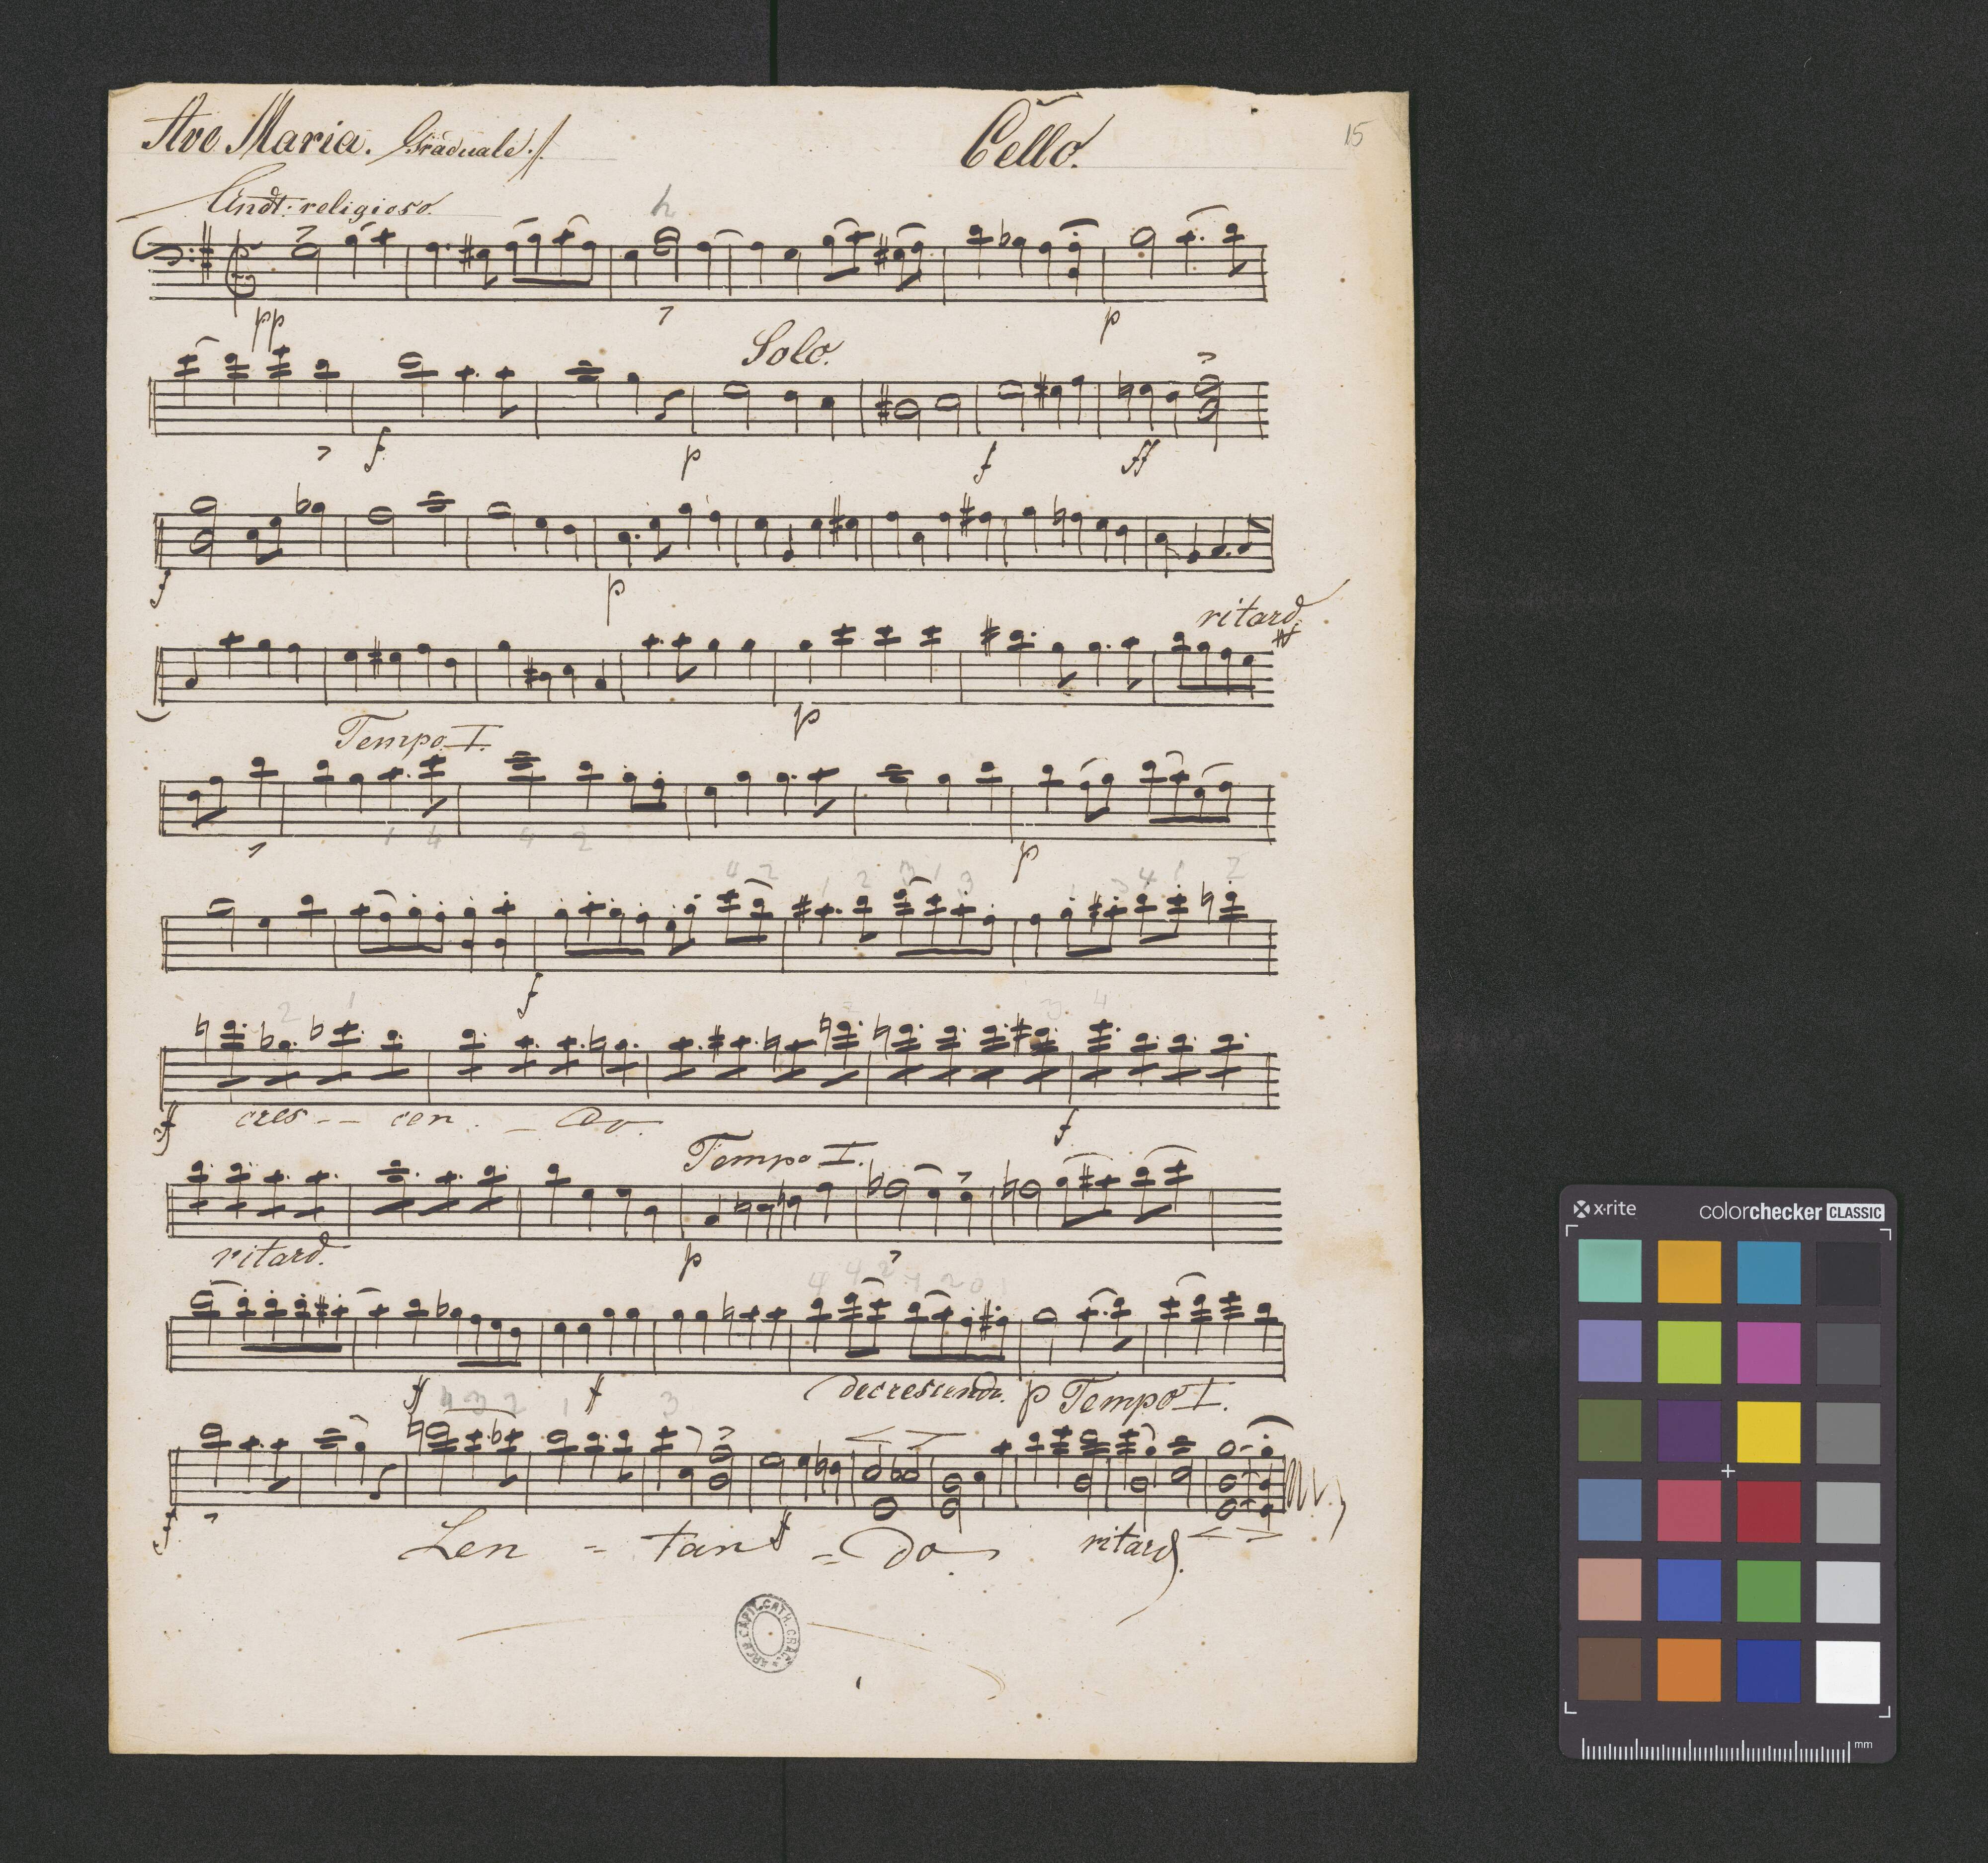 Ave Maria. Graduale. Cello. 15
Andt: religioso.
pp p
Solo.
f p f ff
f p
ritard.
p
Tempo I.
1 4 4 2
p
4 2 1 2 3 1 3 1 3 4 1 2
f
2 1 3 4
ff cres - - cen - - do. f
Tempo I.
ritard. p
4 4 2 4 2 0 1
ff f decrescendo. p Tempo I.
4 3 2 1 3
f ff
Len - tan - do ritard.
ARCH. CAPIT. CATH. CRAC.
x-rite colorchecker CLASSIC
mm